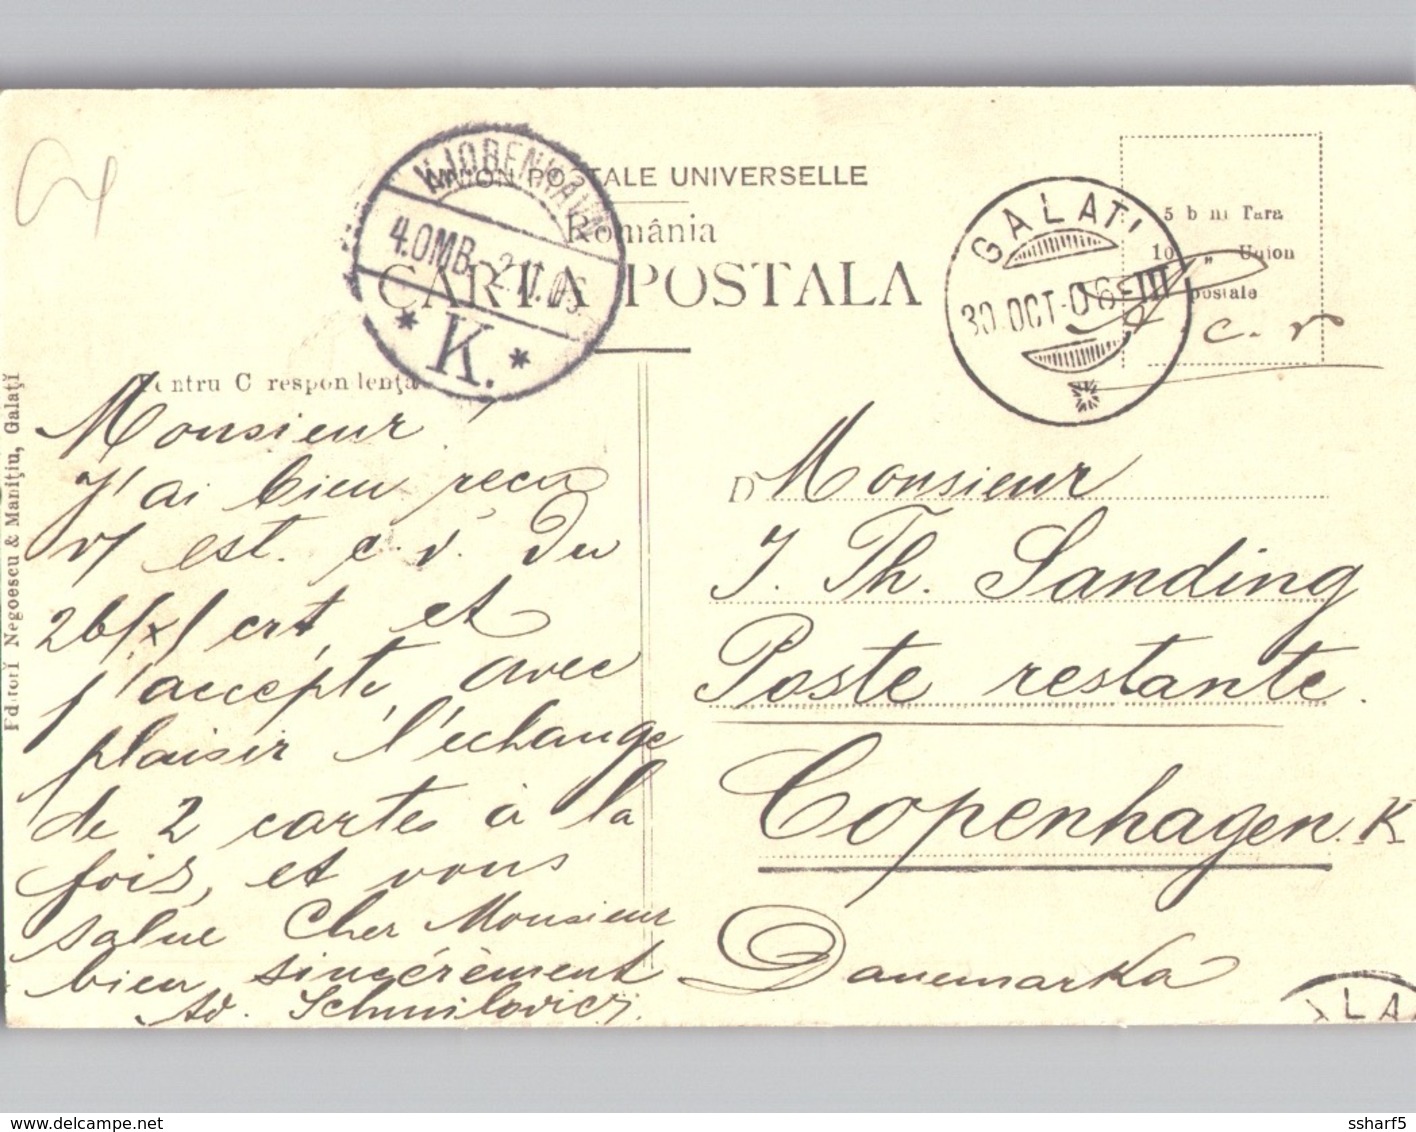 UNION POSTALE UNIVERSELLE
România
CARTA POSTALA
KJØBENHAVN
4.OMB. - 2.11.06
* K. *
GALATI
30.OCT.06
III
5 b ni Țara
10 " Union
postale
c. v
Pentru C respon lența
Editorii Negoescu & Manițiu, Galați
Monsieur!
J'ai bien reçu
v/ est. c. v. du
26/x/ crt, et
j'accépte, avec
plaisir l'échange
de 2 cartes à la
fois, et vous
salue Cher Monsieur
bien sincérèment
Ad. Schmilovici
D Monsieur
J. Th. Sanding
Poste restante.
Copenhagen. K
Danemarka
LA
ssharf5